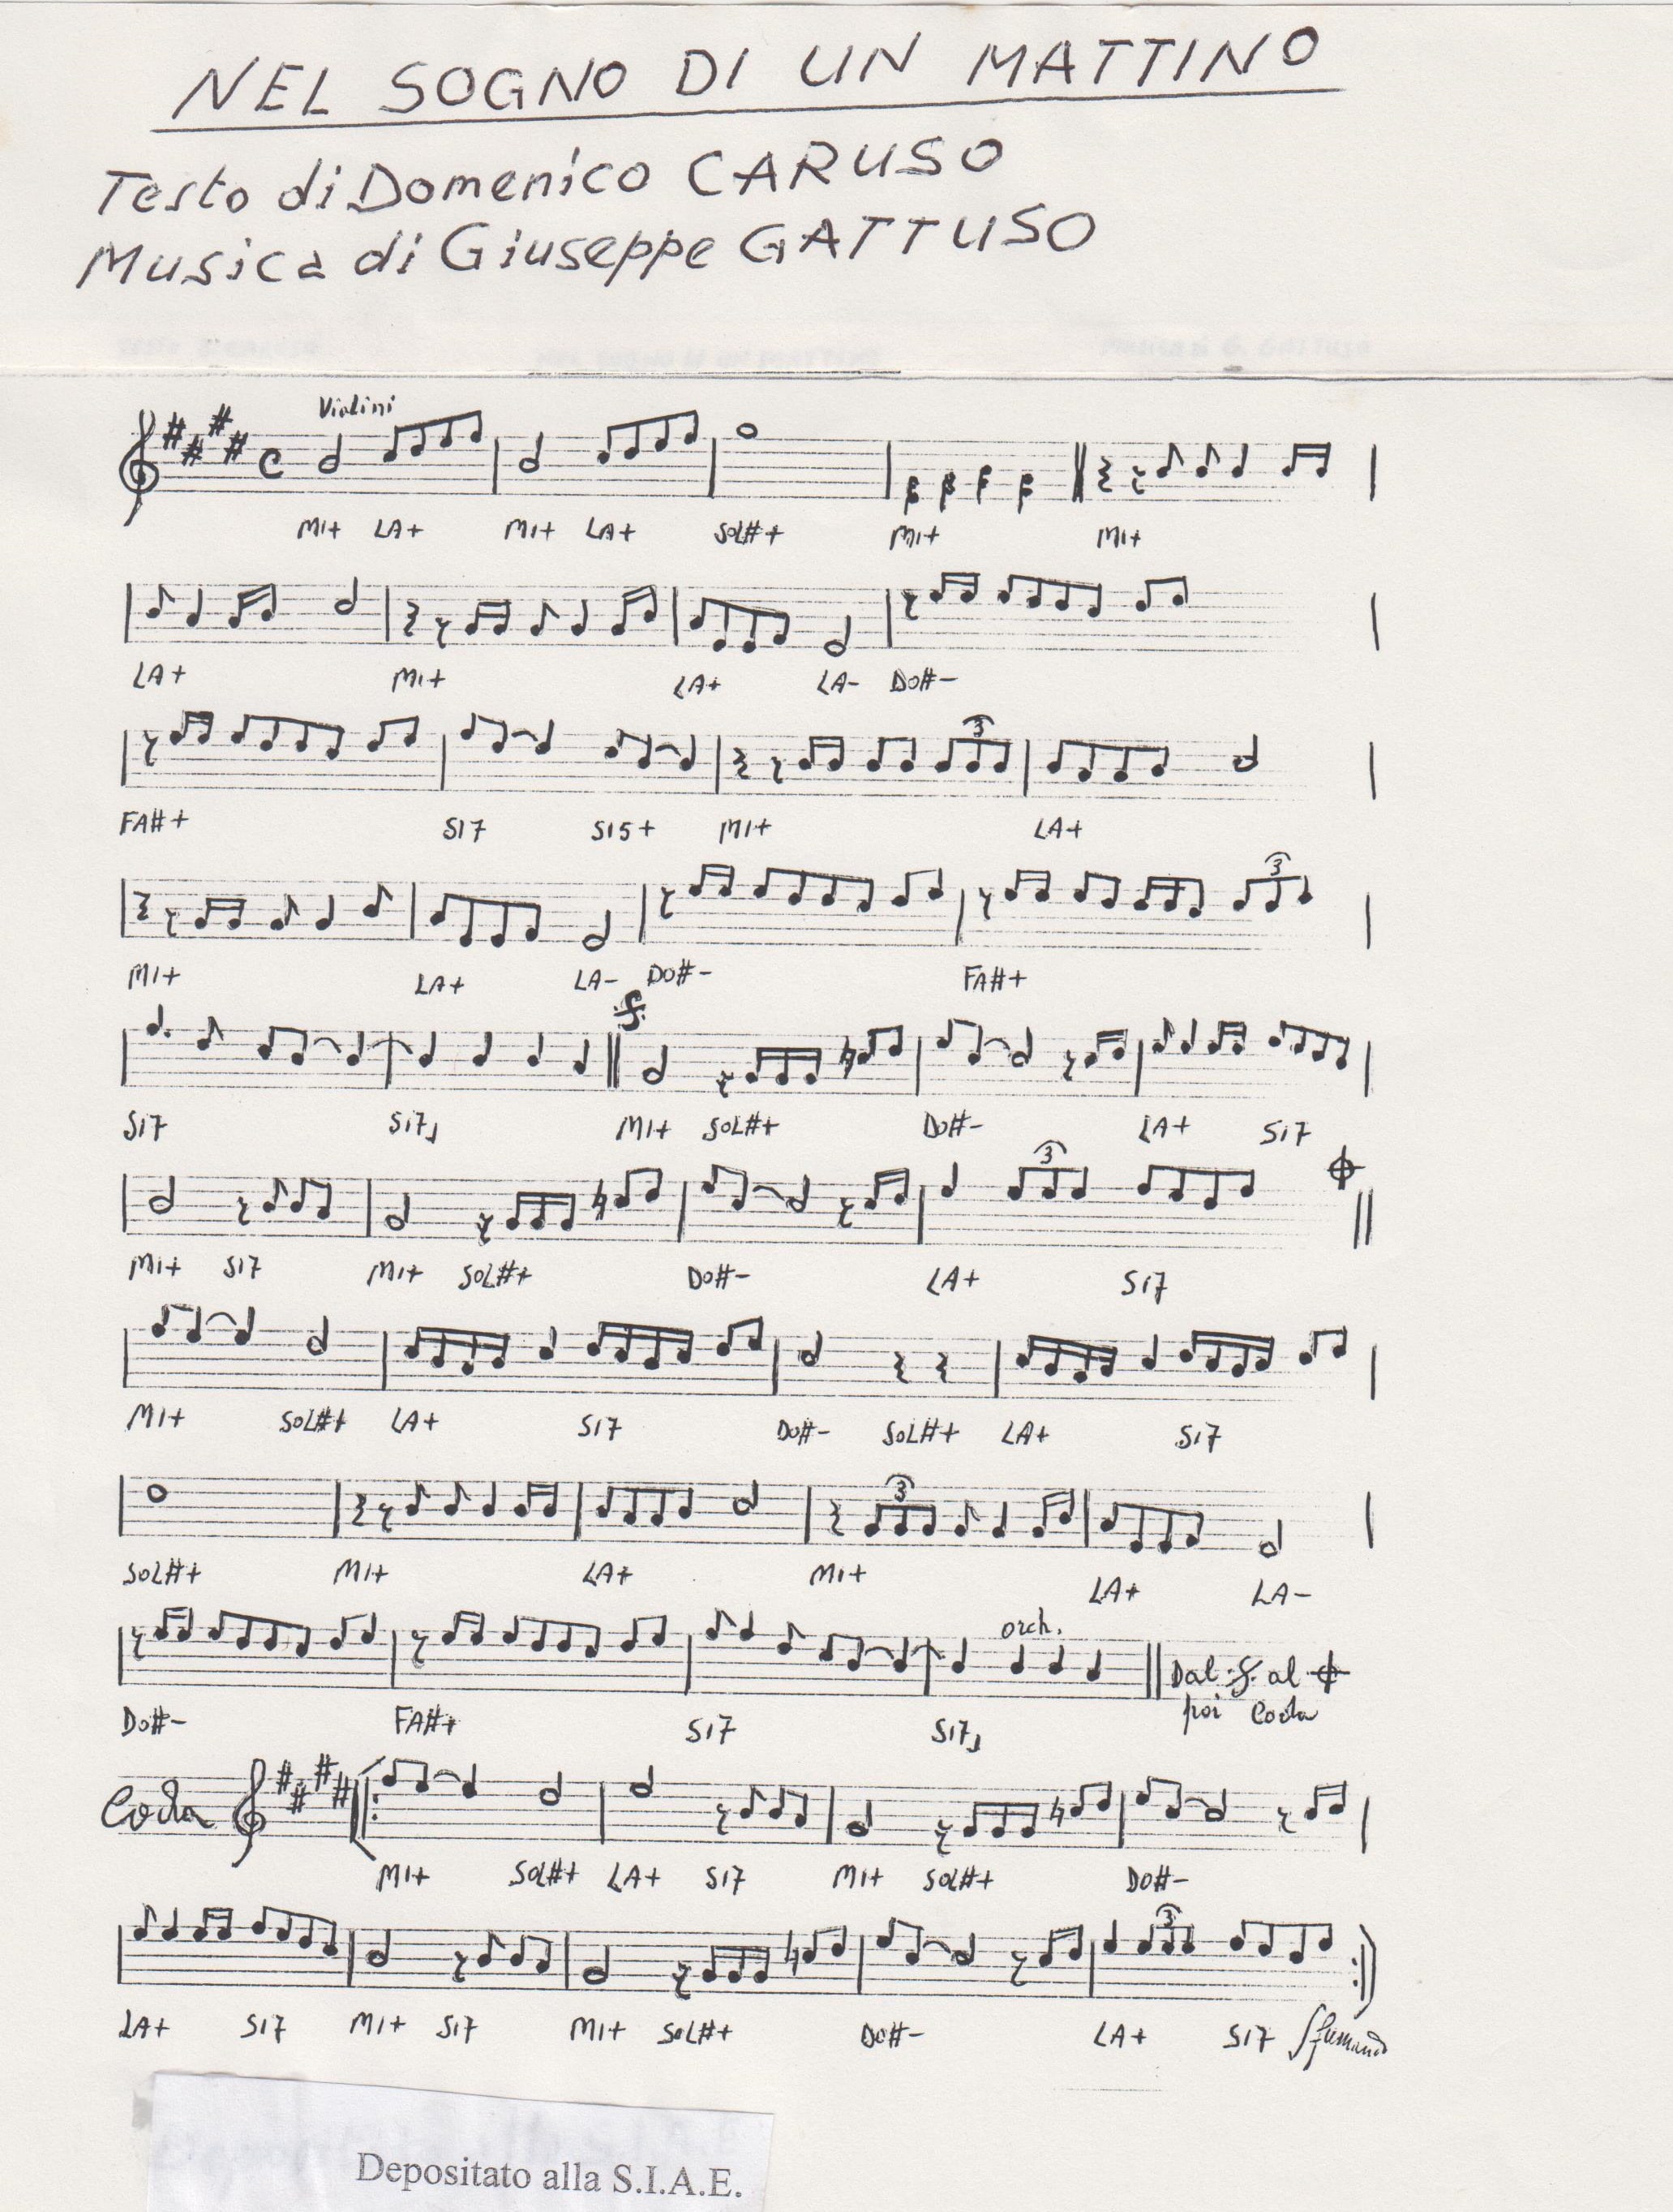 NEL SOGNO DI UN MATTINO
Testo di Domenico CARUSO
Musica di Giuseppe GATTUSO
Violini
MI+ LA+ MI+ LA+ SOL#+ MI+ MI+
LA+ MI+ LA+ LA- DO#-
3
FA#+ SI7 SI5+ MI+ LA+
3
MI+ LA+ LA- DO#- FA#+
SI7 SI7 MI+ SOL#+ DO#- LA+ SI7
3
MI+ SI7 MI+ SOL#+ DO#- LA+ SI7
MI+ SOL#+ LA+ SI7 DO#- SOL#+ LA+ SI7
3
SOL#+ MI+ LA+ MI+ LA+ LA-
orch.
Dal 𝄋 al 𝄌
poi Coda
DO#- FA#+ SI7 SI7
Coda
MI+ SOL#+ LA+ SI7 MI+ SOL#+ DO#-
3
LA+ SI7 MI+ SI7 MI+ SOL#+ DO#- LA+ SI7 Sfumando
Depositato alla S.I.A.E.